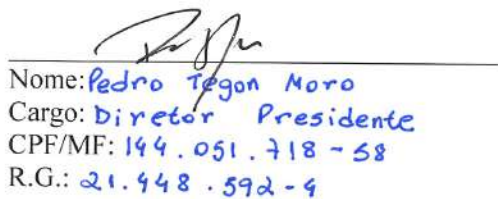 Nome: Pedro Tegon Moro
Cargo: Diretor Presidente
CPF/MF: 144.051.718-58
R.G.: 21.448.592-4